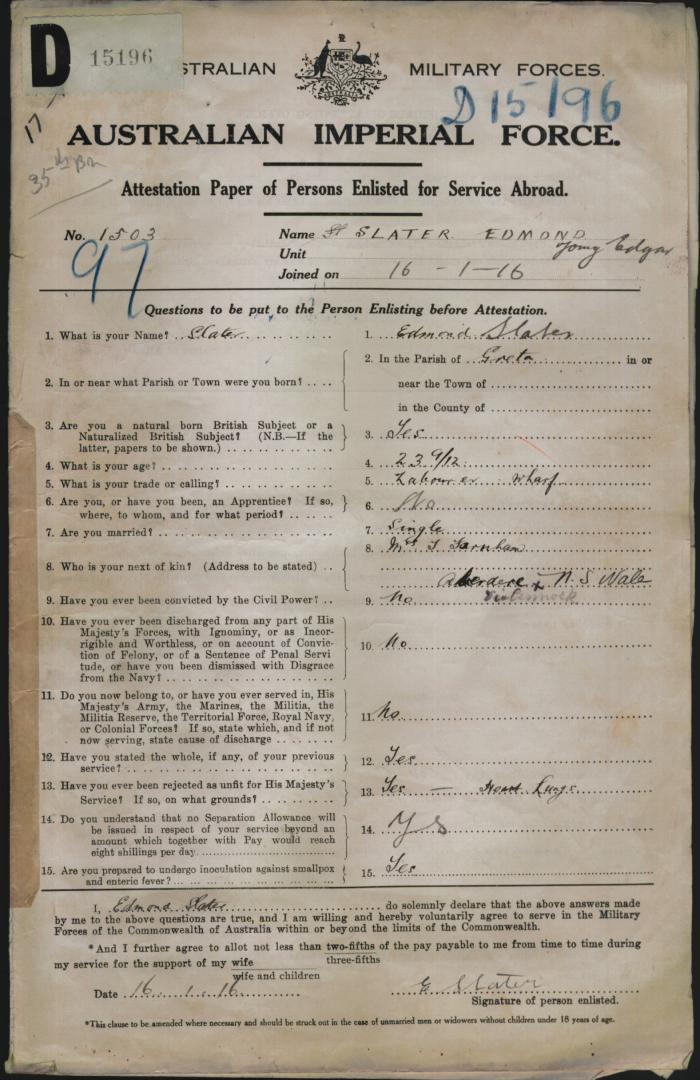 D 15196
AUSTRALIAN MILITARY FORCES.
D15196
17
35th Bn
AUSTRALIAN IMPERIAL FORCE.
Attestation Paper of Persons Enlisted for Service Abroad.
No. 1503 Name SLATER EDMOND
Unit
Joined on 16-1-16
97
Questions to be put to the Person Enlisting before Attestation.
1. What is your Name? Slater 1. Edmond Slater
2. In or near what Parish or Town were you born? 2. In the Parish of Greta in or
near the Town of
in the County of
3. Are you a natural born British Subject or a
Naturalized British Subject? (N.B.—If the
latter, papers to be shown.) 3. Yes
4. What is your age? 4. 23 9/12
5. What is your trade or calling? 5. Labourer Wharf
6. Are you, or have you been, an Apprentice? If so,
where, to whom, and for what period? 6. No
7. Are you married? 7. Single
8. Who is your next of kin? (Address to be stated) 8. Mrs Farnham
Aberdare N. S Wale
9. Have you ever been convicted by the Civil Power? 9. No
10. Have you ever been discharged from any part of His
Majesty's Forces, with Ignominy, or as Incor-
rigible and Worthless, or on account of Convic-
tion of Felony, or of a Sentence of Penal Servi
tude, or have you been dismissed with Disgrace
from the Navy? 10. No
11. Do you now belong to, or have you ever served in, His
Majesty's Army, the Marines, the Militia, the
Militia Reserve, the Territorial Force, Royal Navy,
or Colonial Forces? If so, state which, and if not
now serving, state cause of discharge 11. No
12. Have you stated the whole, if any, of your previous
service? 12. Yes
13. Have you ever been rejected as unfit for His Majesty's
Service? If so, on what grounds? 13. Yes — Heart Lungs
14. Do you understand that no Separation Allowance will
be issued in respect of your service beyond an
amount which together with Pay would reach
eight shillings per day. 14. Yes
15. Are you prepared to undergo inoculation against smallpox
and enteric fever? 15. Yes
I, Edmond Slater do solemnly declare that the above answers made
by me to the above questions are true, and I am willing and hereby voluntarily agree to serve in the Military
Forces of the Commonwealth of Australia within or beyond the limits of the Commonwealth.
*And I further agree to allot not less than two-fifths of the pay payable to me from time to time during
three-fifths
my service for the support of my wife
wife and children
Date 16. 1. 16 E Slater
Signature of person enlisted.
*This clause to be amended where necessary and should be struck out in the case of unmarried men or widowers without children under 18 years of age.